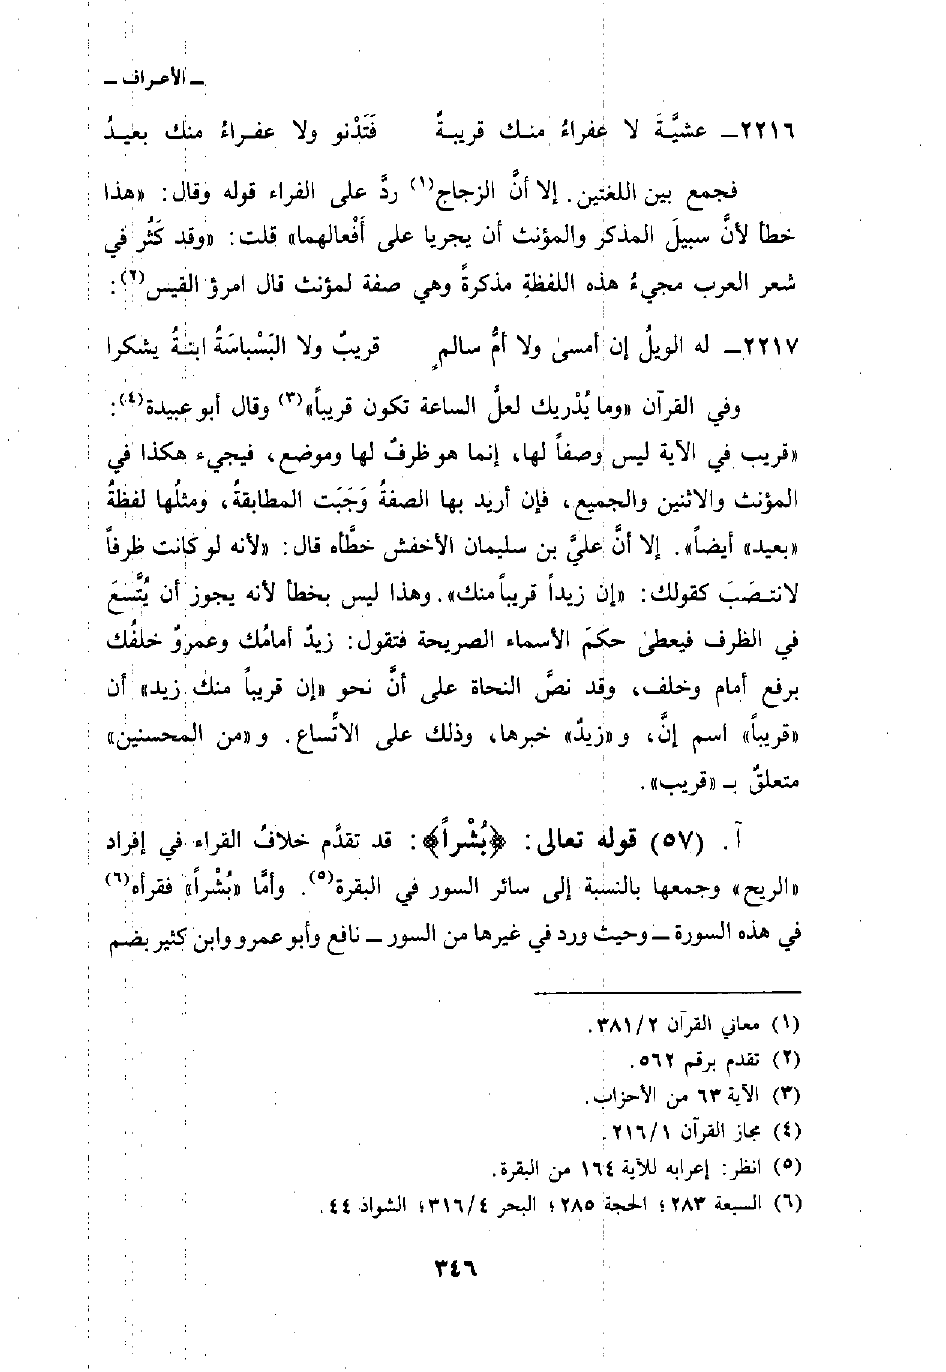 ـ الأعراف ـ
٢٢١٦ـ عشيَّةَ لا عفراءُ منك قريبةٌ فَتَدْنو ولا عفراءُ منك بعيدُ
فجمع بين اللغتين. إلا أنَّ الزجاج(١) ردَّ على الفراء قوله وقال: «هذا
خطأ لأنَّ سبيلَ المذكر والمؤنث أن يجريا على أَفْعالهما» قلت: «وقد كَثُر في
شعر العرب مجيءُ هذه اللفظةِ مذكرةً وهي صفة لمؤنث قال امرؤ القيس(٢):
٢٢١٧ـ له الويلُ إن أمسىٰ ولا أمُّ سالمٍ قريبٌ ولا البَسْباسَةُ ابنةُ يشكرا
وفي القرآن «وما يُدْريك لعلَّ الساعة تكون قريباً»(٣) وقال أبو عبيدة(٤):
«قريب في الآية ليس وصفاً لها، إنما هو ظرفٌ لها وموضع، فيجيء هكذا في
المؤنث والاثنين والجميع، فإن أريد بها الصفةُ وَجَبَت المطابقةُ، ومثلُها لفظةُ
«بعيد» أيضاً». إلا أنَّ عليَّ بن سليمان الأخفش خطَّأه قال: «لأنه لو كانت ظرفاً
لانتصَبَ كقولك: «إن زيداً قريباً منك». وهذا ليس بخطأ لأنه يجوز أن يُتَّسعَ
في الظرف فيعطىٰ حكمَ الأسماء الصريحة فتقول: زيدٌ أمامُك وعمروٌ خلفُك
برفع أمام وخلف، وقد نصَّ النحاة على أنَّ نحو «إن قريباً منك زيد» أن
«قريباً» اسم إنَّ، و«زيدٌ» خبرها، وذلك على الاتِّساع. و«من المحسنين»
متعلقٌ بـ «قريب».
آ. (٥٧) قوله تعالى: ﴿بُشْراً﴾: قد تقدَّم خلافُ القراء في إفراد
«الريح» وجمعها بالنسبة إلى سائر السور في البقرة(٥). وأمَّا «بُشْراً» فقرأه(٦)
في هذه السورة ـ وحيث ورد في غيرها من السور ـ نافع وأبو عمرو وابن كثير بضم
(١) معاني القرآن ٣٨١/٢.
(٢) تقدم برقم ٥٦٢.
(٣) الآية ٦٣ من الأحزاب.
(٤) مجاز القرآن ٢١٦/١.
(٥) انظر: إعرابه للآية ١٦٤ من البقرة.
(٦) السبعة ٢٨٣؛ الحجة ٢٨٥؛ البحر ٣١٦/٤؛ الشواذ ٤٤.
٣٤٦